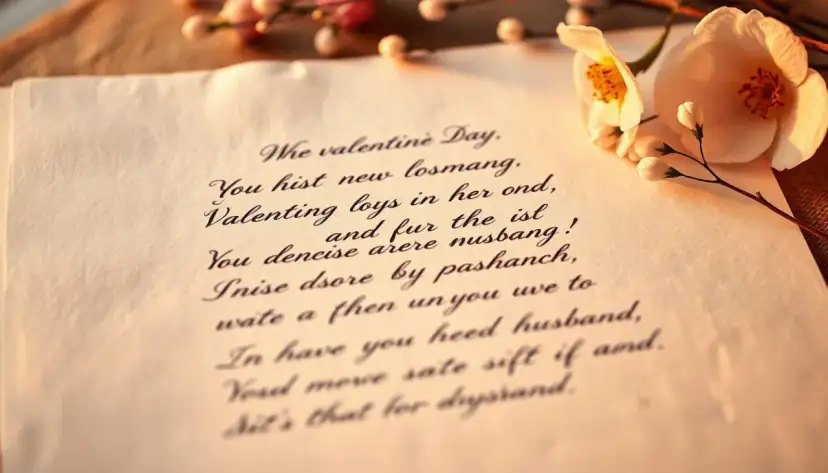 Whe valentine Day.
You hist new losmang.
Valenting loys in her ond,
and fur the ist
You dencise arere nusbang!
Inise dsore by pashanch,
wate a fhen unyou uve to
In have you heed husband,
Youd move sate sift if aord.
that for